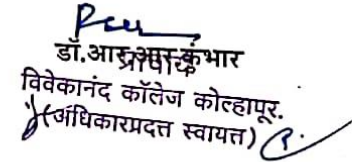 डॉ.आर.आर.कुंभार
प्राचार्य
विवेकानंद कॉलेज कोल्हापूर.
(अधिकारप्रदत्त स्वायत्त)